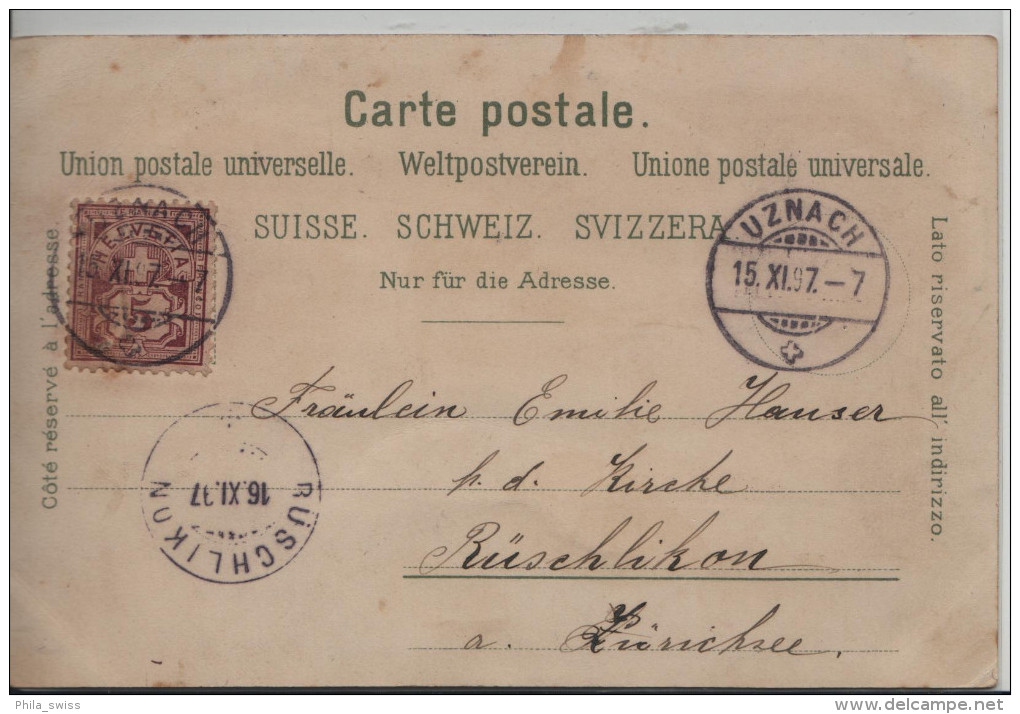 Carte postale.
Union postale universelle. Weltpostverein. Unione postale universale.
SUISSE. SCHWEIZ. SVIZZERA
Nur für die Adresse.
Côté réservé à l'adresse.
Lato riservato all' indirizzo.
HELVETIA
15
XI.97.-7
UZNACH
15.XI.97.-7
Fräulein Emilie Hauser
p. d. Kirche
Rüschlikon
a. Zürichsee.
RÜSCHLIKON
16.XI.97
Phila_swiss
delcampe.net